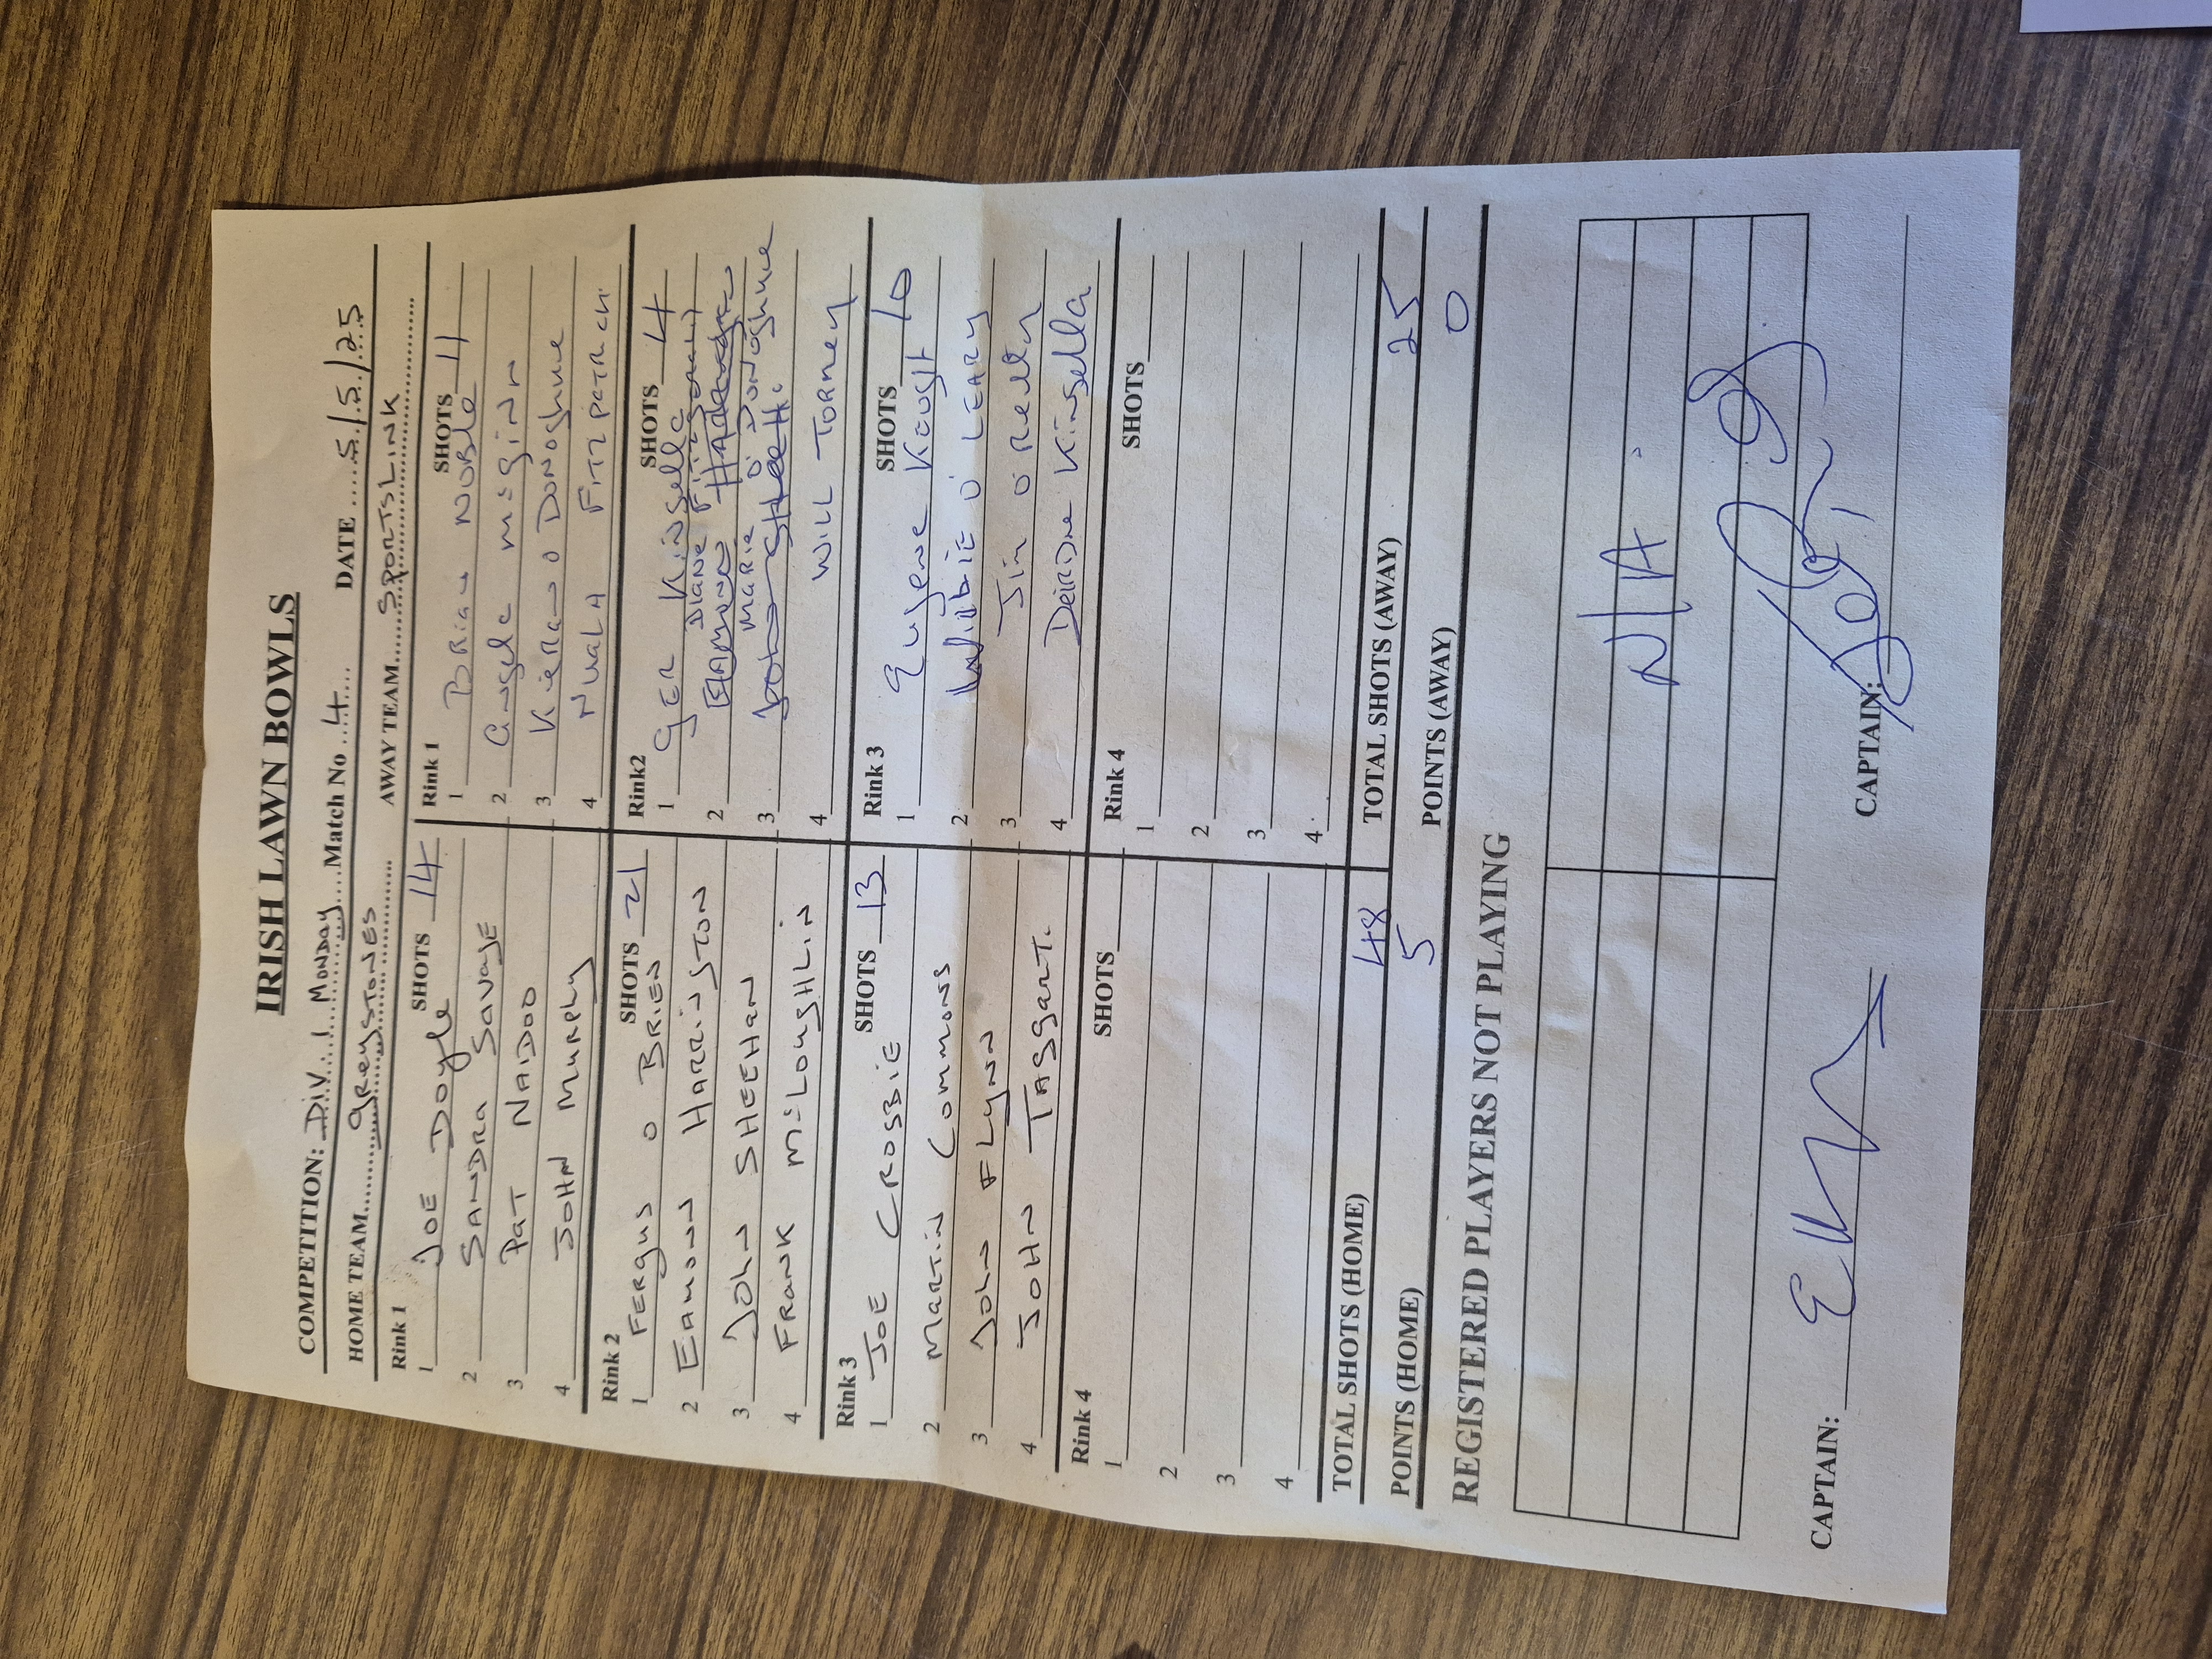 IRISH LAWN BOWLS
COMPETITION: DIV 1 MONDAY Match No 4 DATE 5/5/25
HOME TEAM greystones AWAY TEAM SPORTSLINK
Rink 1 SHOTS 14
1 JOE Doyle
2 SANDRA SavagE
3 PaT NAIDOO
4 JOHN MURPHy
Rink 1 SHOTS 11
1 BRIAN NOBLE
2 Angela McGinn
3 KieRan O DONOghue
4 NuaLA
Rink 2 SHOTS 21
1 FERgus O BRIEN
2 EAMONN HARRINgTON
3 JOHN SHEEHAN
4 FRANK McLougHLin
Rink2 SHOTS 4
1 gER Kinsella
2 DIANE
3 MARIE O'DONOghue
4 WILL TORMEy
Rink 3 SHOTS 13
1 JOE CROSBIE
2 MARTIN COMMONS
3 JOHN FLYNN
4 JOHN TAggART.
Rink 3 SHOTS 10
1 Eugene Keogh
2 O'LEARY
3 Jim O Reilly
4 DeiRDRe Kinsella
Rink 4 SHOTS
1
2
3
4
Rink 4 SHOTS
1
2
3
4
TOTAL SHOTS (HOME) 48 TOTAL SHOTS (AWAY) 25
POINTS (HOME) 5 POINTS (AWAY) 0
REGISTERED PLAYERS NOT PLAYING
N/A.
CAPTAIN: CAPTAIN: